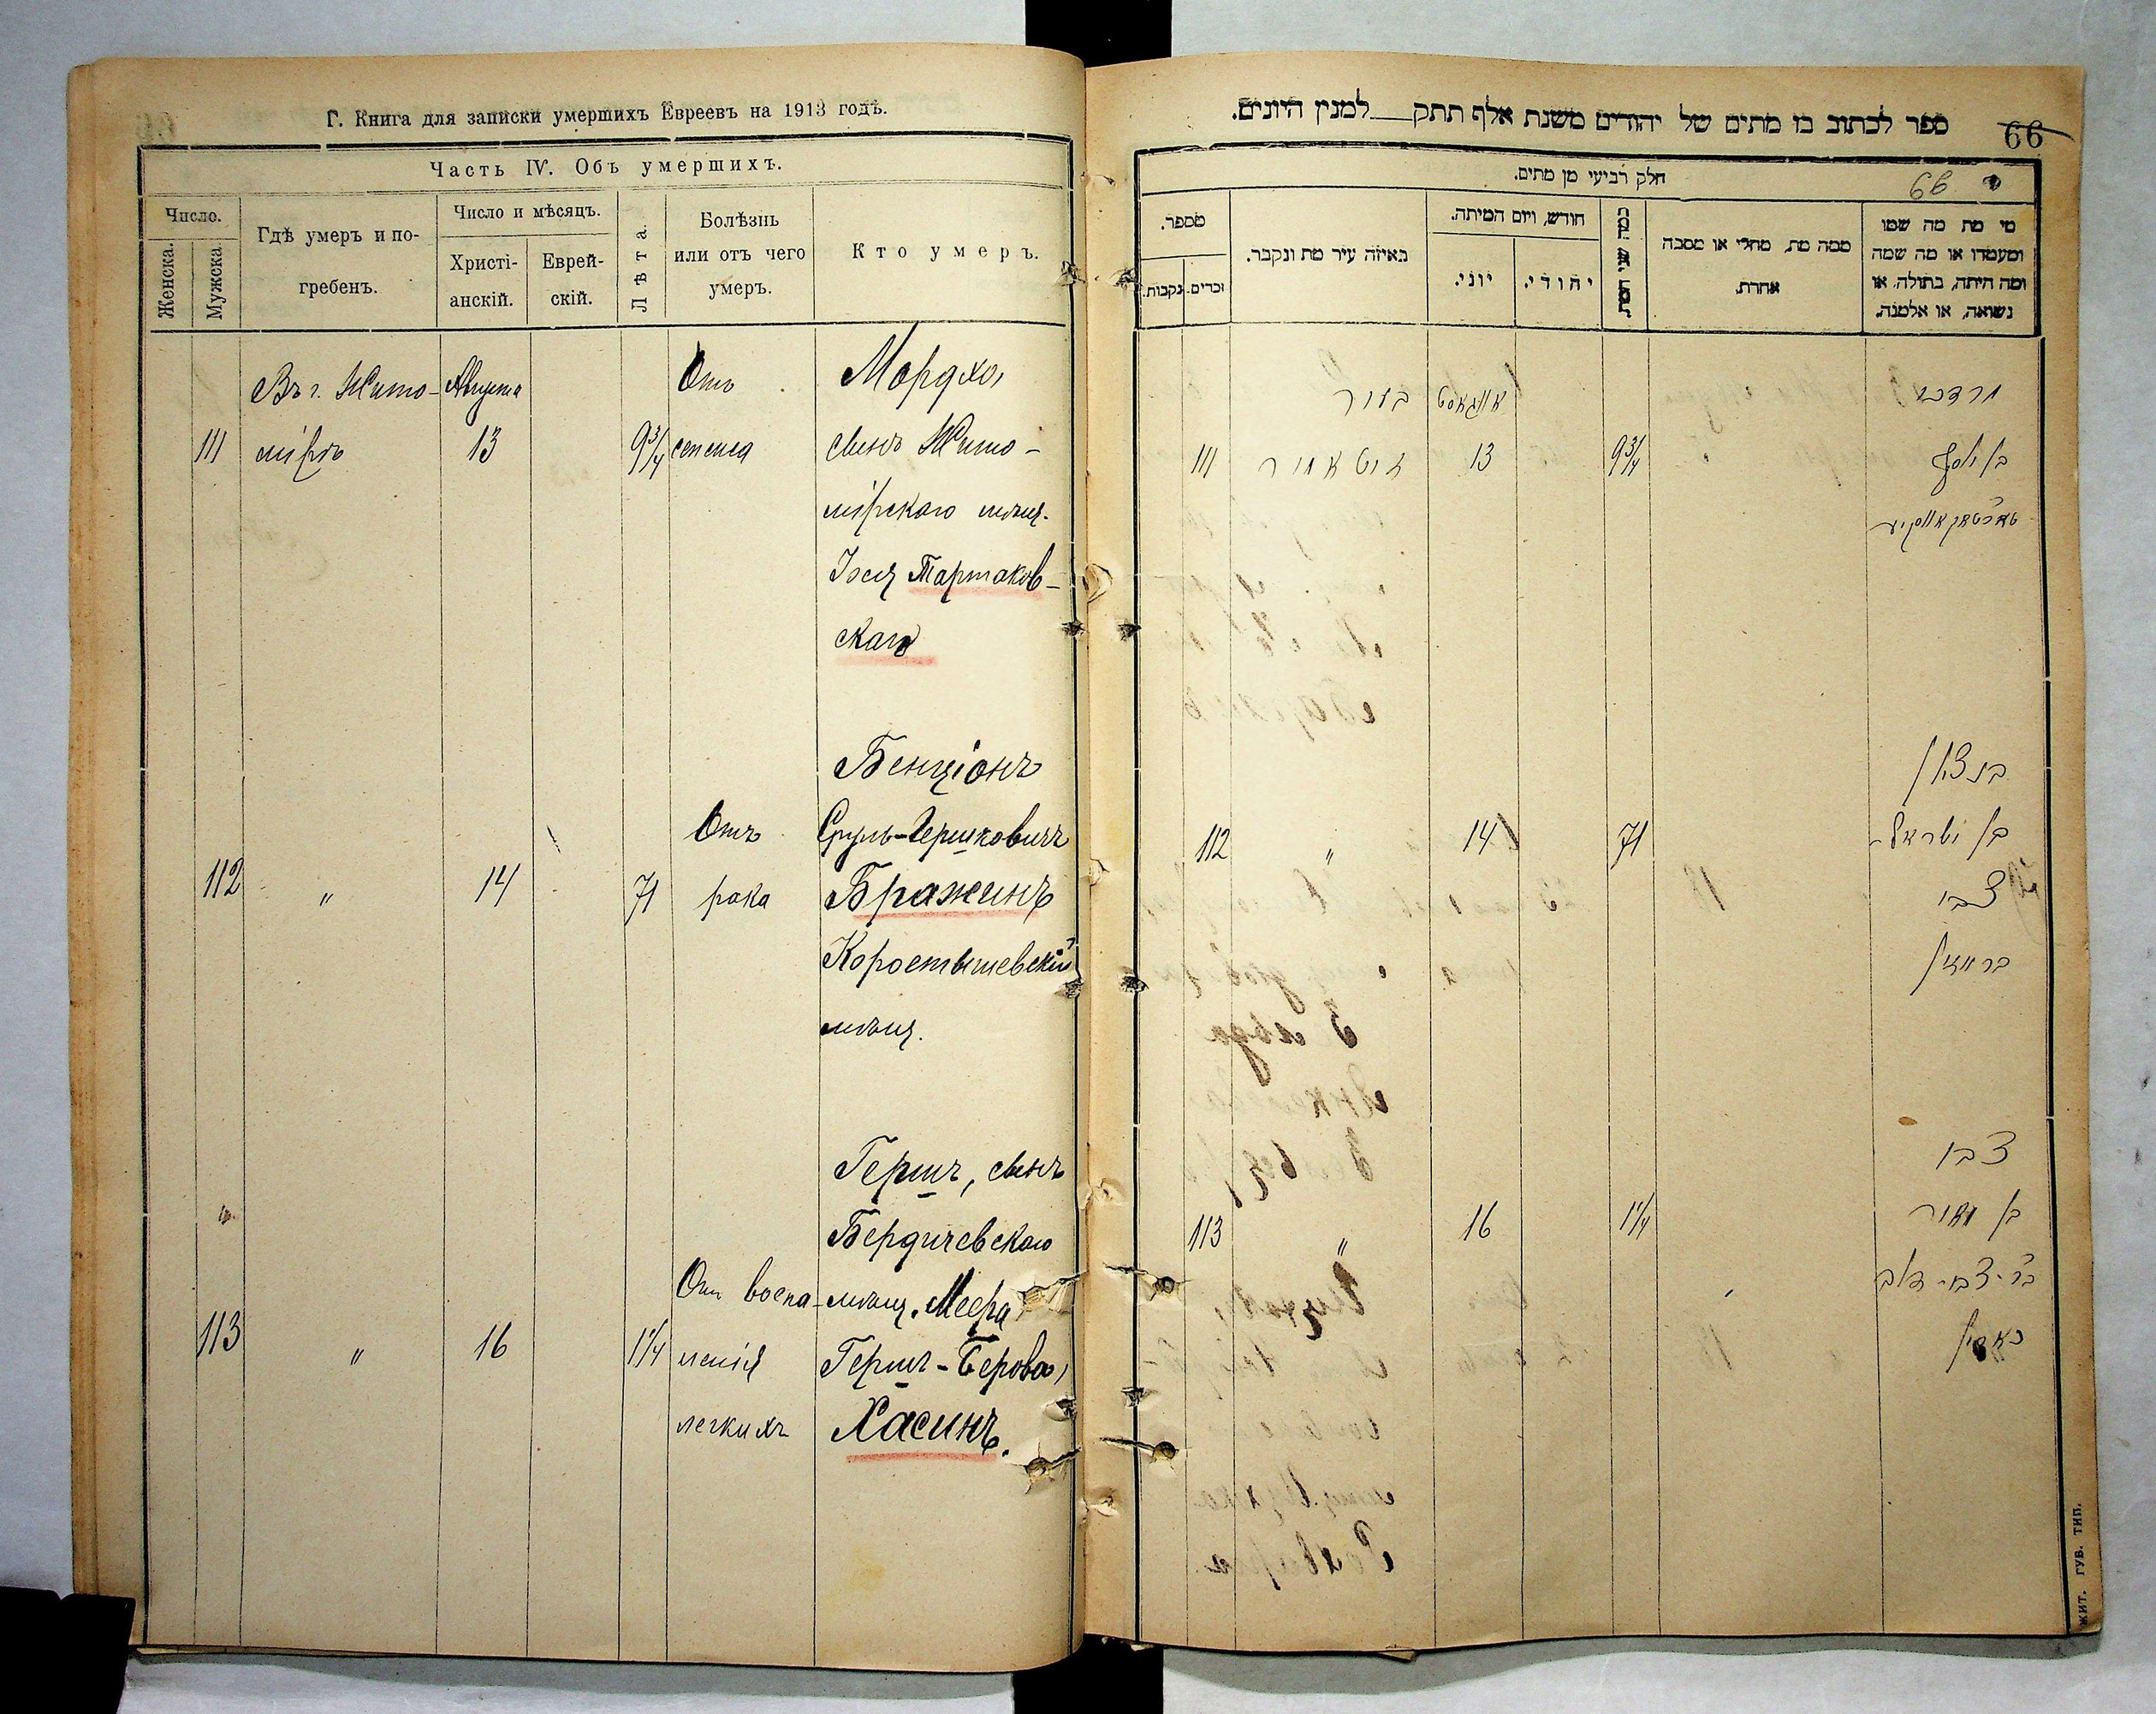 Г. Книга для записки умершихъ Евреевъ на 1913 годъ.
Часть IV. Объ умершихъ.
Число.
Женска.
Мужска.
Гдѣ умеръ и по-
гребенъ.
Число и мѣсяцъ.
Христі-
анскій.
Еврей-
скій.
Лѣта.
Болѣзнь
или отъ чего
умеръ.
Кто умеръ.
Въ г. Жито- Августа Отъ Мордхо,
111 мірѣ 13 9 3/4 сепсиса сынъ Жито-
мірскаго мѣщ.
Іося Тартаков-
скаго
Бенціонъ
Отъ Сруль-Гершковичъ
112 " 14 71 рака Бражинъ
Коростышевскій
мѣщ.
Гершъ, сынъ
Бердичевскаго
Отъ воспа- мѣщ. Меера
113 " 16 1 1/4 ленія Гершъ-Берова,
легкихъ Хасинъ.
ספר לכתוב בו מתים של יהודים משנת אלף תתק למנין היונים.
66
חלק רביעי מן מתים.
66
מספר.
נקבות.
זכרים.
באיזה עיר מת ונקבר.
חודש, ויום המיתה.
יוני.
יהודי.
כמה שני המת.
ממה מת, מחלי או מסבה
אחרת.
מי מת מה שמו
ומעמדו או מה שמה
ומה היתה, בתולה, או
נשואה, או אלמנה.
בעיר אווגאסט מרדכי
111 זיטאמיר 13 9 3/4 בן יוסף
טארטאקאווסקיע
בנציון
112 " 14 71 בן ישראל-
צבי
בראזין
צבי
113 " 16 1 1/4 בן מאיר
בר-צבי-דוב
חאסין
ЖИТ. ГУБ. ТИП.